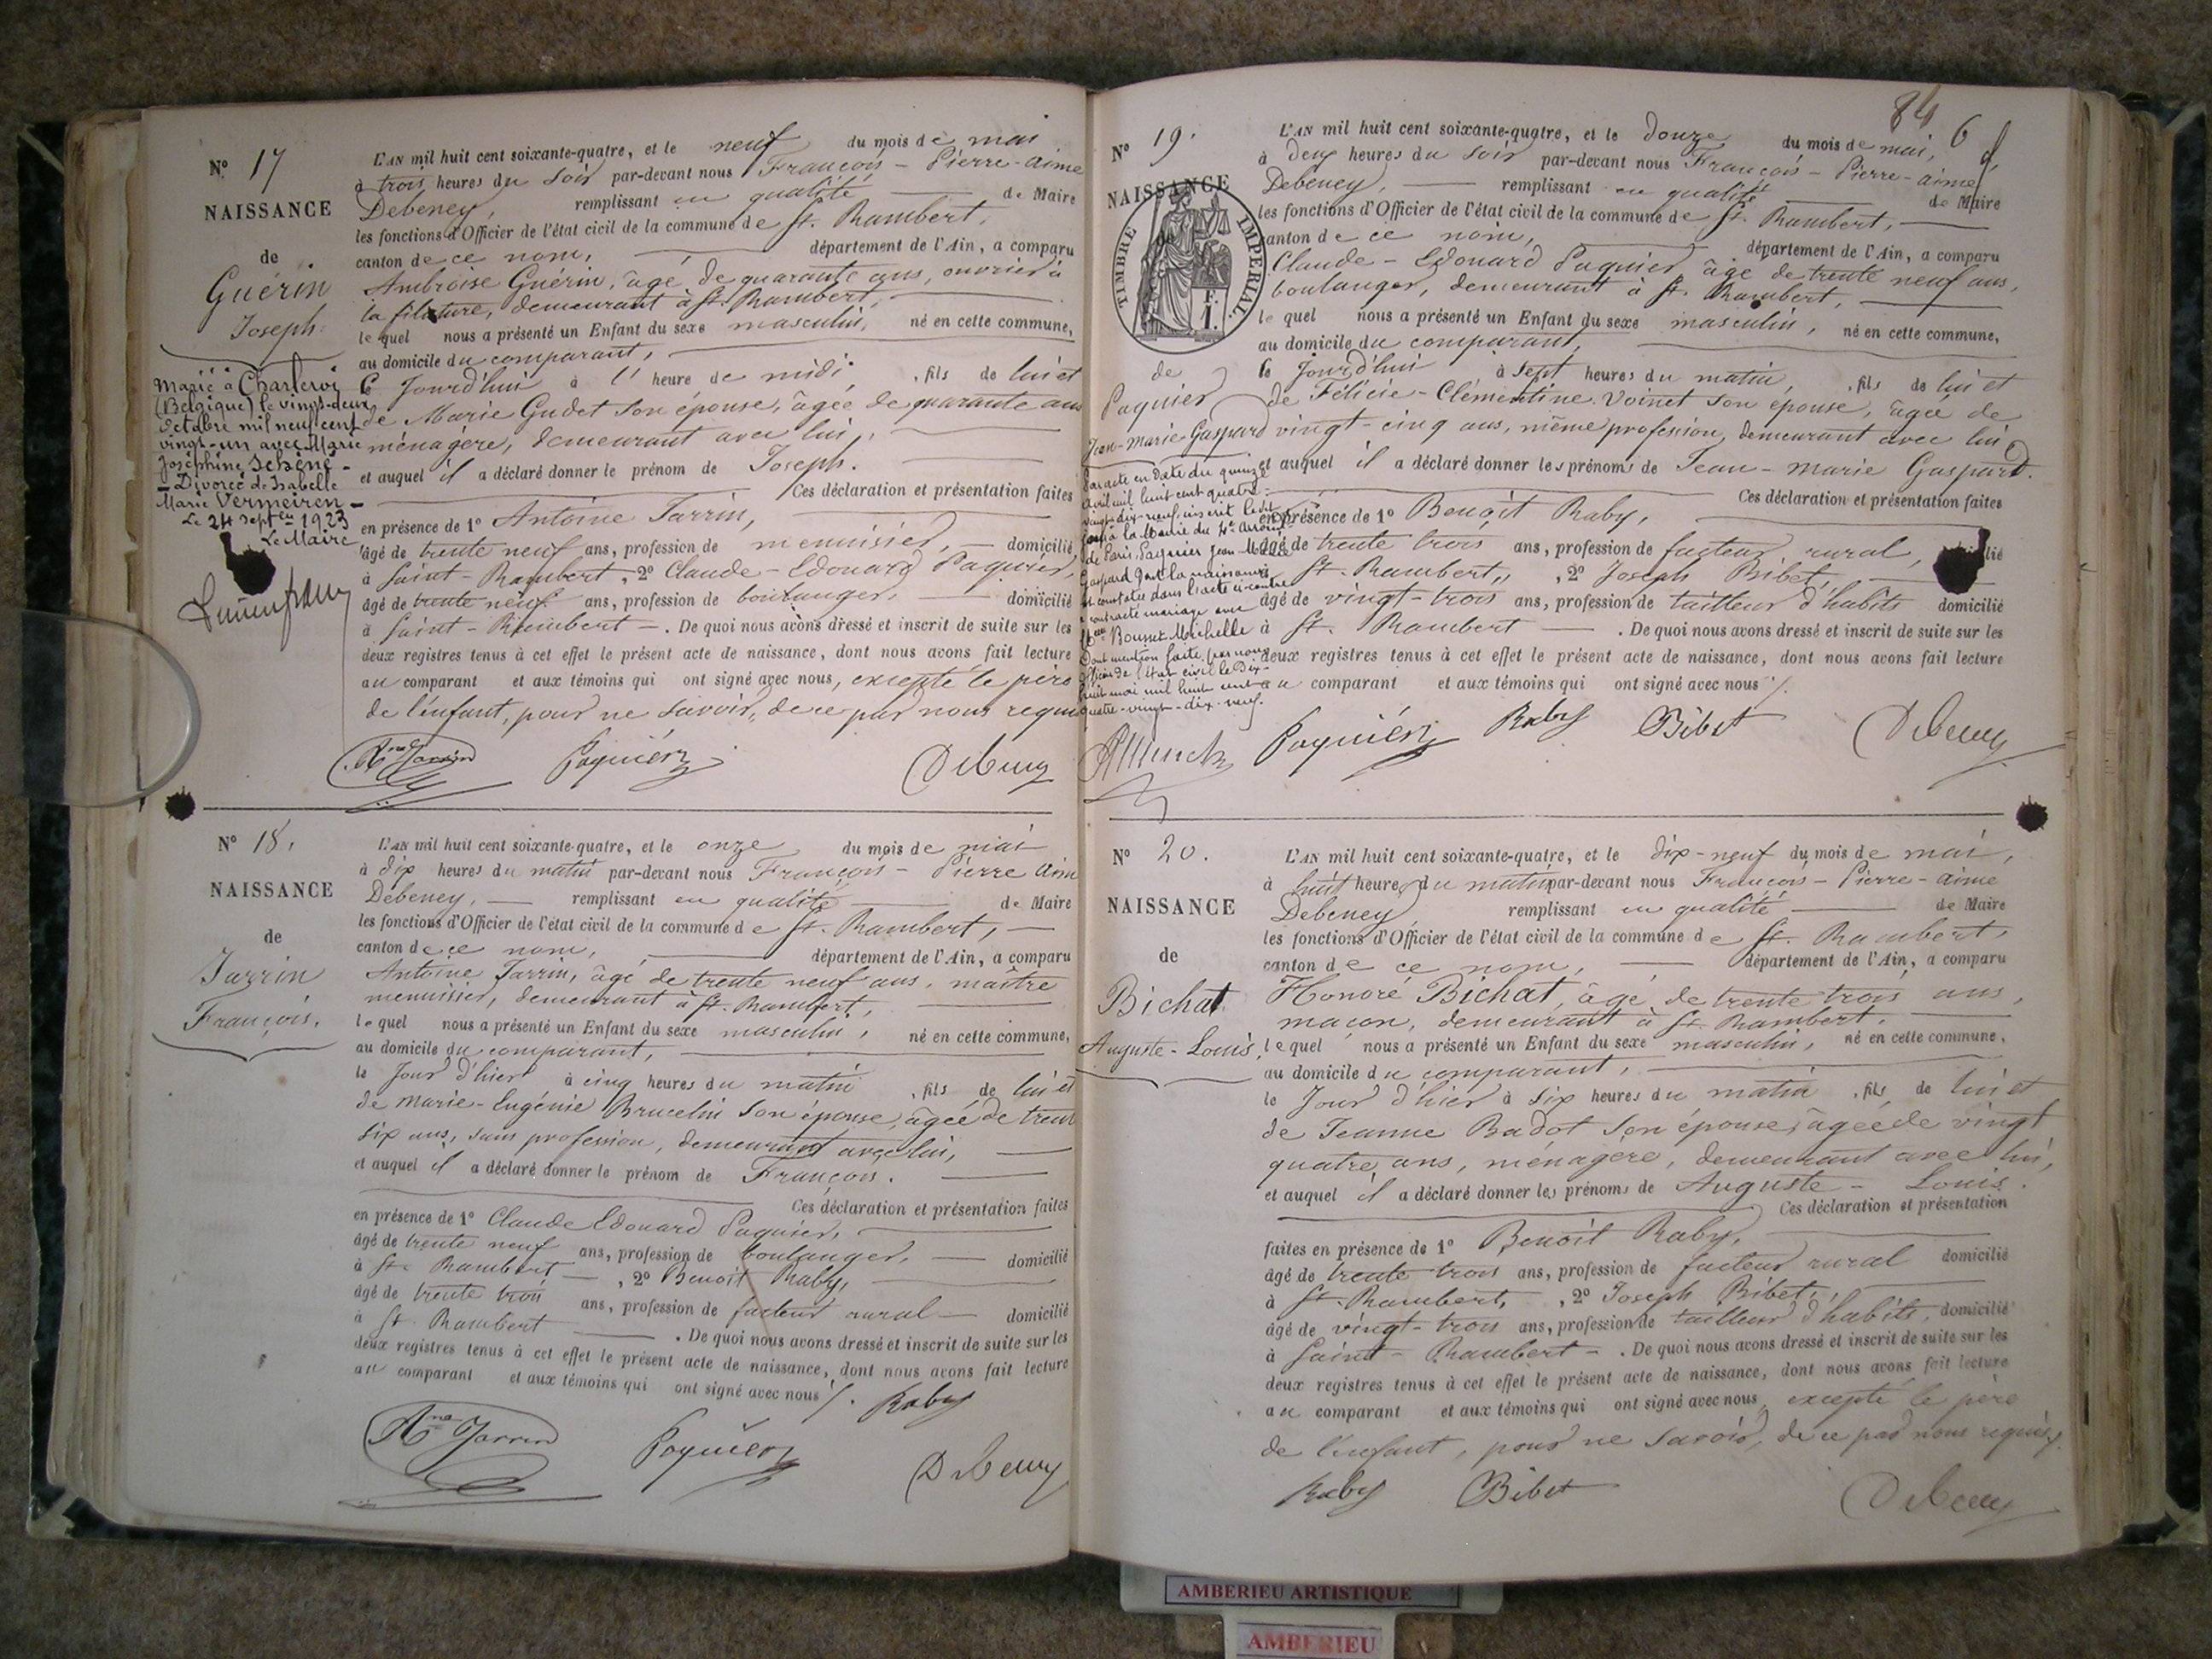 N° 17
NAISSANCE
de
Guérin
Joseph.
Marié à Charleroi
(Belgique) le vingt-deux
octobre mil neuf cent
vingt-un avec Marie
Joséphine Schène -
- Divorcé de Isabelle
Marie Vermeiren -
Le 24 septbre 1923
Le Maire
L'AN mil huit cent soixante-quatre, et le neuf du mois de mai
à trois heures du soir par-devant nous François - Pierre - aimé
Debeney, remplissant en qualité de Maire
les fonctions d'Officier de l'état civil de la commune de St. Rambert,
canton de ce nom, département de l'Ain, a comparu
Ambroise Guérin, âgé de quarante ans, ouvrier à
la filature, demeurant à St. Rambert,
lequel nous a présenté un Enfant du sexe masculin, né en cette commune,
au domicile du comparant,
Jourd'hui à l' heure de midi, fils de lui et
de Marie Gudet son épouse, âgée de quarante ans
ménagère, demeurant avec lui,
et auquel il a déclaré donner le prénom de Joseph.
Ces déclaration et présentation faites
en présence de 1° Antoine Jarrin,
âgé de trente neuf ans, profession de menuisier, domicilié
à Saint-Rambert, 2° Claude-Edouard Paquier,
âgé de trente neuf ans, profession de boulanger, domicilié
à Saint-Rambert. De quoi nous avons dressé et inscrit de suite sur les
deux registres tenus à cet effet le présent acte de naissance, dont nous avons fait lecture
au comparant et aux témoins qui ont signé avec nous, excepté le père
de l'enfant, pour ne savoir, de ce par nous requis
Ane Jarrin Paquier Debeney
N° 18.
NAISSANCE
de
Jarrin
François.
L'AN mil huit cent soixante-quatre, et le onze du mois de mai
à dix heures du matin par-devant nous François - Pierre aimé
Debeney, remplissant en qualité de Maire
les fonctions d'Officier de l'état civil de la commune de St. Rambert,
canton de ce nom, département de l'Ain, a comparu
Antoine Jarrin, âgé de trente neuf ans, maître
menuisier, demeurant à St. Rambert,
lequel nous a présenté un Enfant du sexe masculin, né en cette commune,
au domicile du comparant,
le Jour d'hier à cinq heures du matin, fils de lui et
de Marie-Eugénie Brucelin son épouse, âgée de trente
six ans, sans profession, demeurant avec lui,
et auquel il a déclaré donner le prénom de François.
Ces déclaration et présentation faites
en présence de 1° Claude Edouard Paquier,
âgé de trente neuf ans, profession de boulanger, domicilié
à St. Rambert, 2° Benoit Raby,
âgé de trente trois ans, profession de facteur rural domicilié
à St. Rambert. De quoi nous avons dressé et inscrit de suite sur les
deux registres tenus à cet effet le présent acte de naissance, dont nous avons fait lecture
au comparant et aux témoins qui ont signé avec nous. Raby
Ane Jarrin Paquier Debeney
84
6
N° 19.
NAISSANCE
TIMBRE IMPERIAL
1 F.
de
Paquier
Jean-Marie Gaspard
Par acte en date du quinze
avril mil huit cent quatre-
vingt-dix-neuf, inscrit ledit
jour à la Mairie du 4e arrond.
de Paris, Paquier Jean Marie
Gaspard dont la naissance
est constatée dans l'acte ci-contre
a contracté mariage avec
Bousset Michelle
Dont mention faite par nous
officier de l'état civil le dix-
huit mai mil huit cent
quatre-vingt-dix-neuf.
L'AN mil huit cent soixante-quatre, et le douze du mois de mai,
à deux heures du soir par-devant nous François - Pierre - aimé
Debeney, remplissant en qualité de Maire
les fonctions d'Officier de l'état civil de la commune de St. Rambert,
canton de ce nom, département de l'Ain, a comparu
Claude-Edouard Paquier, âgé de trente neuf ans,
boulanger, demeurant à St. Rambert,
lequel nous a présenté un Enfant du sexe masculin, né en cette commune,
au domicile du comparant,
le Jourd'hui à sept heures du matin, fils de lui et
de Félicie-Clémentine Voinet son épouse, âgée de
vingt-cinq ans, même profession, demeurant avec lui
et auquel il a déclaré donner les prénoms de Jean-Marie Gaspard.
Ces déclaration et présentation faites
en présence de 1° Benoit Raby,
âgé de trente trois ans, profession de facteur rural,
St. Rambert, 2° Joseph Bibet,
âgé de vingt-trois ans, profession de tailleur d'habits domicilié
à St. Rambert. De quoi nous avons dressé et inscrit de suite sur les
deux registres tenus à cet effet le présent acte de naissance, dont nous avons fait lecture
au comparant et aux témoins qui ont signé avec nous
Paquier Raby Bibet Debeney
N° 20.
NAISSANCE
de
Bichat
Auguste-Louis,
L'AN mil huit cent soixante-quatre, et le dix-neuf du mois de mai,
à huit heures du matin par-devant nous François - Pierre - aimé
Debeney, remplissant en qualité de Maire
les fonctions d'Officier de l'état civil de la commune de St. Rambert,
canton de ce nom, département de l'Ain, a comparu
Honoré Bichat, âgé de trente trois ans,
maçon, demeurant à St. Rambert,
lequel nous a présenté un Enfant du sexe masculin, né en cette commune,
au domicile du comparant,
le Jour d'hier à six heures du matin, fils de lui et
de Jeanne Badot son épouse, âgée de vingt
quatre ans, ménagère, demeurant avec lui,
et auquel il a déclaré donner les prénoms de Auguste-Louis.
Ces déclaration et présentation
faites en présence de 1° Benoit Raby,
âgé de trente trois ans, profession de facteur rural domicilié
à St. Rambert, 2° Joseph Bibet,
âgé de vingt-trois ans, profession de tailleur d'habits, domicilié
à Saint-Rambert. De quoi nous avons dressé et inscrit de suite sur les
deux registres tenus à cet effet le présent acte de naissance, dont nous avons fait lecture
au comparant et aux témoins qui ont signé avec nous, excepté le père
de l'enfant, pour ne savoir, de ce par nous requis.
Raby Bibet Debeney
AMBERIEU ARTISTIQUE
AMBERIEU